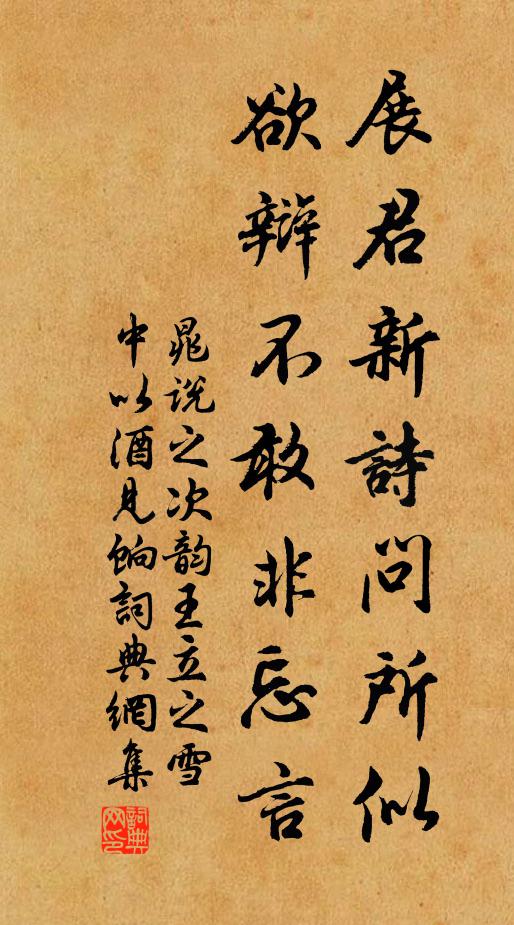 展君新詩問所似
欲辯不敢非忘言
晁说之次韵王立之雪
中以酒見餉詞典網集
詞典
网印